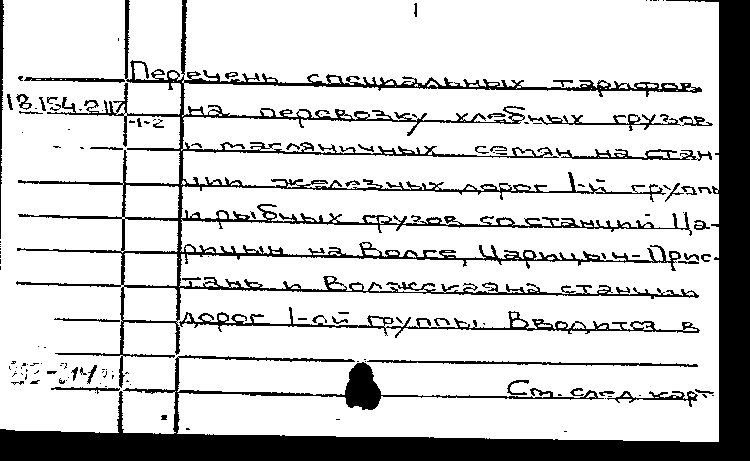 1
Перечень специальных тарифов
18.154.2.117 на перевозку хлебных грузов
-1-2
и масляничных семян на стан-
ции железных дорог 1-й группы
и рыбных грузов со станций Ца-
рицын на Волге, Царицын-Прис-
тань и Волжская на станции
дорог 1-ой группы. Вводится в
См. след. карт